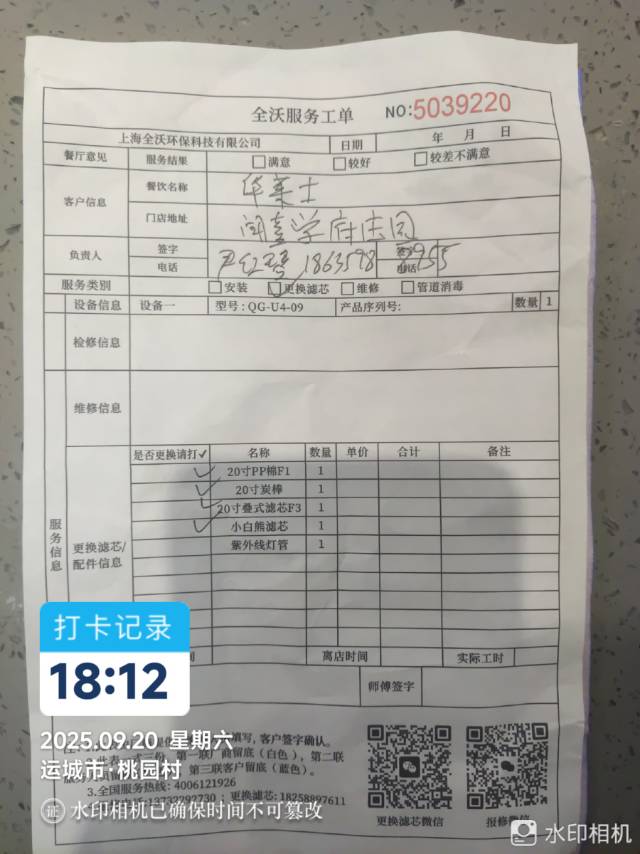 全沃服务工单 NO:5039220
上海全沃环保科技有限公司 日期 年 月 日
餐厅意见 服务结果 满意 较好 较差不满意
客户信息 餐饮名称 华莱士
门店地址 闻喜学府庄园
负责人 签字 电话 尹红 1863598 8955
服务类别 安装 更换滤芯 维修 管道消毒
设备信息 设备一 型号:QG-U4-09 产品序列号: 数量 1
检修信息
维修信息
服务信息
更换滤芯/配件信息
是否更换请打✓ 名称 数量 单价 合计 备注
✓ 20寸PP棉F1 1
✓ 20寸炭棒 1
✓ 20寸叠式滤芯F3 1
✓ 小白熊滤芯 1
紫外线灯管 1
打卡记录
18:12
间 离店时间 实际工时
师傅签字
2025.09.20 星期六
运城市·桃园村
填写,客户签字确认。
此表一式三份,第一联厂商留底(白色),第二联
第三联客户留底(蓝色)。
3.全国服务热线:4006121926
13732292730;更换滤芯:18258897611
更换滤芯微信 报修微信
证 水印相机已确保时间不可篡改
水印相机